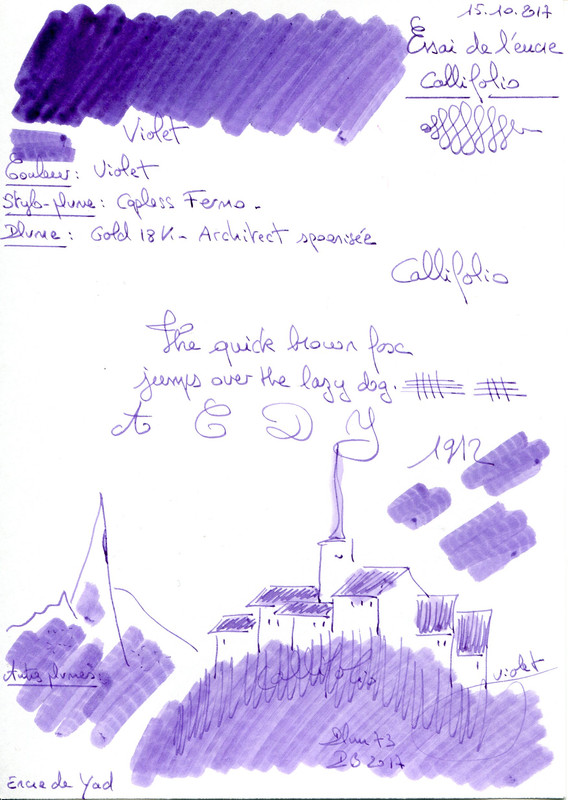 15.10.2017
Essai de l'encre
Callifolio
Violet
Couleur: Violet
Stylo-plume: Capless Fermo.
Plume: Gold 18 K - Architect spoonisée
Callifolio
The quick brown fox
jumps over the lazy dog.
A E D Y
1912
Autres plumes:
Callifolio
Violet
Plum 73
DB 2017
Encre de Yad